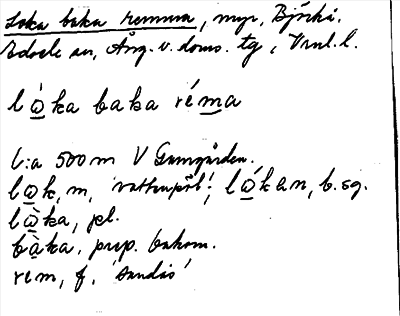 Loka baka remma, myr, Björkå,
Ådals an, Ång. v. doms. tg, Vrnl. l.
lò̲ka baka réma
l:a 500 m V Gamgården.
lo̲k, m, 'vattenpöl'; ló̲kan, b. sg.
lò̲ka, pl.
bàka, prep. bakom.
rem, f, 'sandås'